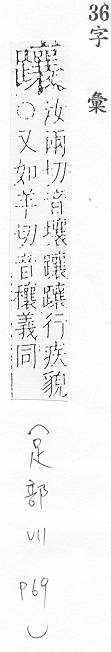 36字彙
躟
汝兩切音壤躟躟行疾貌
○又如羊切音穰義同
(足部 VII P69)